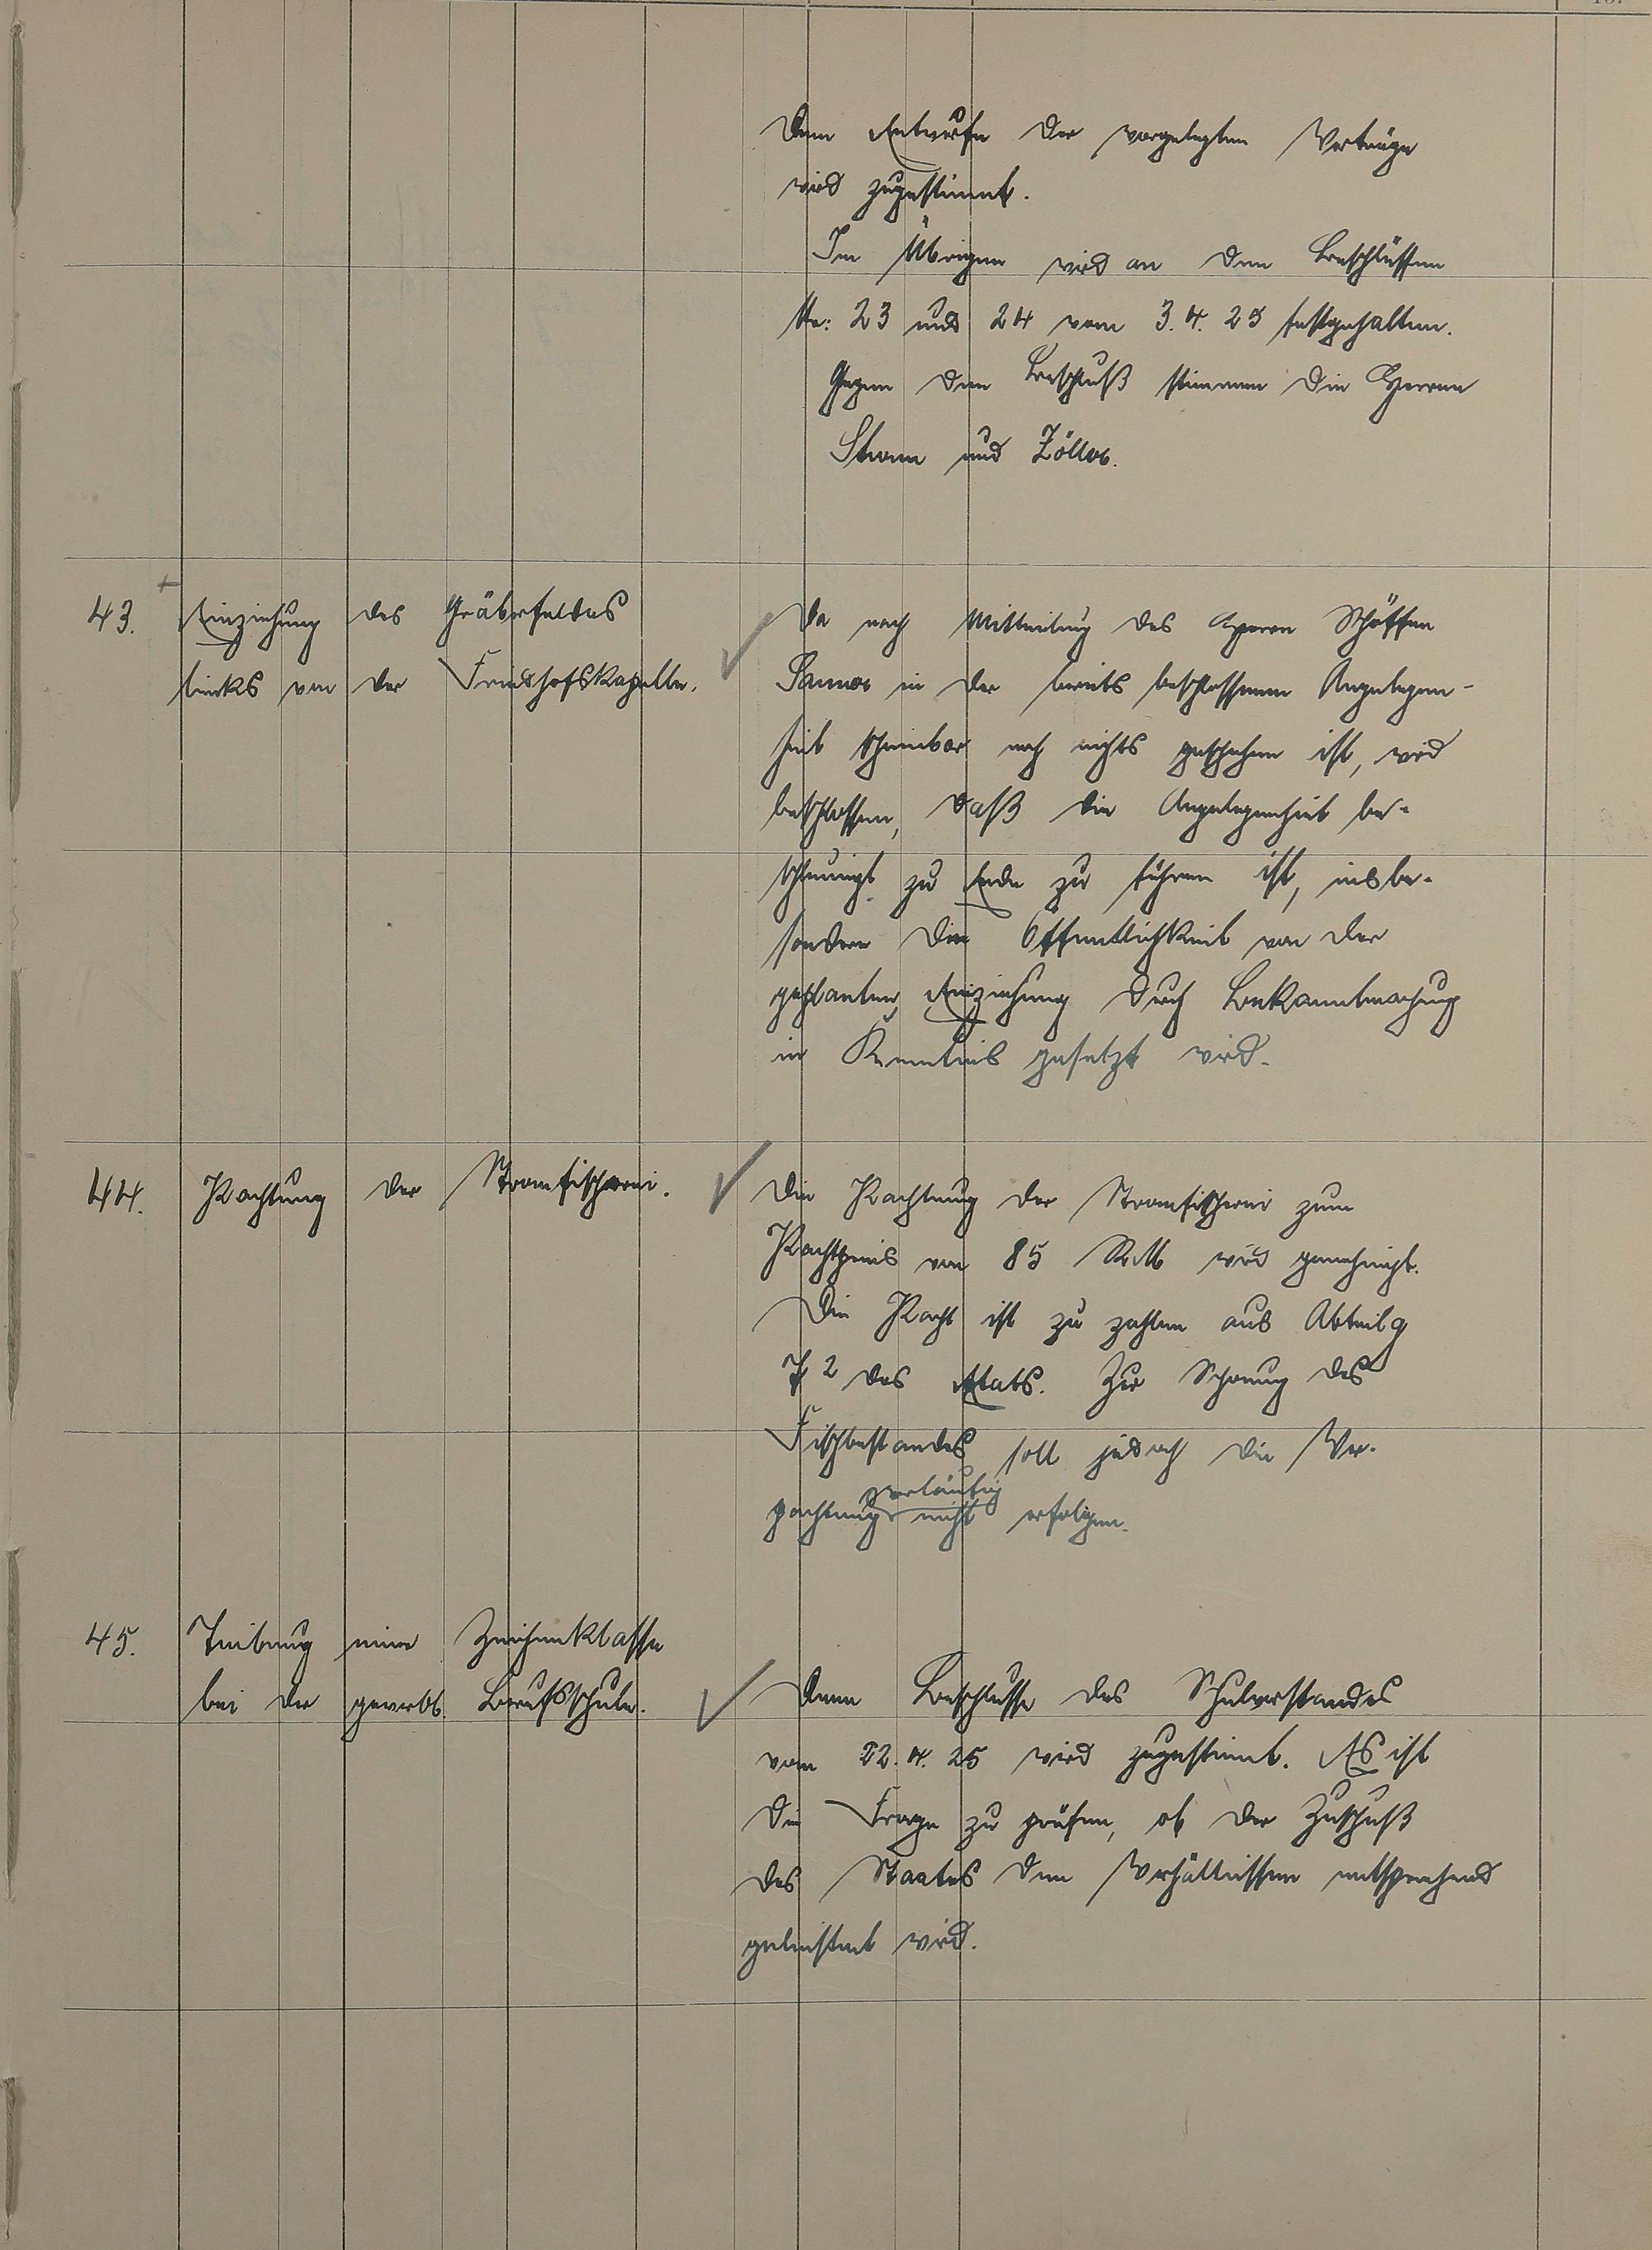 Dem Entwurfe der vorgelegten Verträge
wird zugestimmt.
Im Übrigen wird an den Beschlüssen
Nr: 23 und 24 vom 3.4.25 festgehalten.
Gegen den Beschluß stimmen die Herren
und Zöller.
43. Einziehung des Gräberfeldes
links von der Friedhofskapelle.
Da nach Mitteilung des Herrn Schöffen
in der bereits beschlossenen Angelegen-
heit scheinbar noch nichts geschehen ist, wird
beschlossen, daß die Angelegenheit be-
schleunigt zu Ende zu führen ist, insbe-
sondere die Öffentlichkeit von der
geplanten Einziehung durch Bekanntmachung
in Kenntnis gesetzt wird.
44. Pachtung der Stromfischerei.
Die Pachtung der Stromfischerei zum
Pachtpreis von 85 RM wird genehmigt.
Die Pacht ist zu zahlen aus Abteilg
2 des Etats. Zur Schonung des
Fischbestandes soll jedoch die Ver-
vorläufig
pachtung nicht erfolgen.
45. Teilung einer Zeichenklasse
bei der gewerbl. Berufsschule.
Dem Beschlusse des Schulvorstandes
vom 22.4.25 wird zugestimmt. Es ist
die Frage zu prüfen, ob der Zuschuß
des Staates den Verhältnissen entsprechend
geleistet wird.